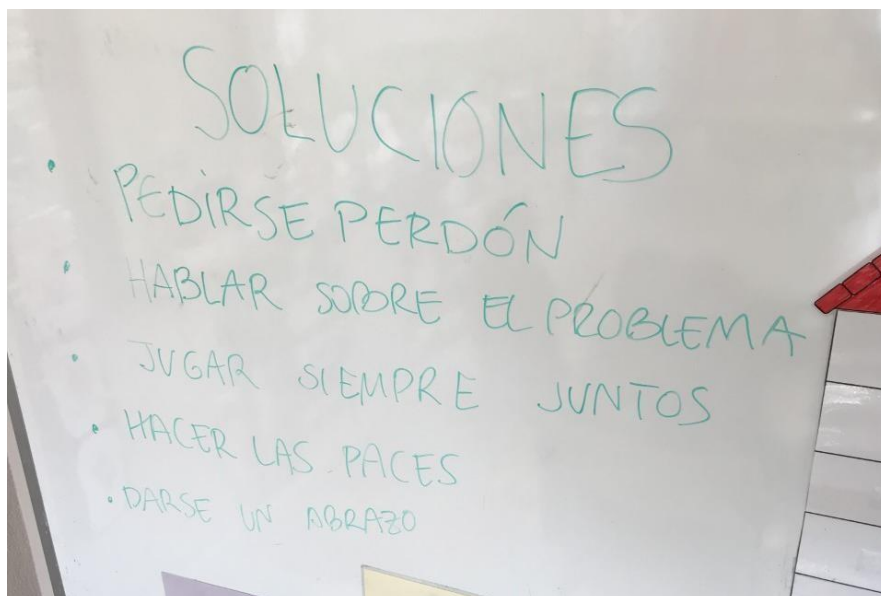 SOLUCIONES
• PEDIRSE PERDÓN
• HABLAR SOBRE EL PROBLEMA
• JUGAR SIEMPRE JUNTOS
• HACER LAS PACES
• DARSE UN ABRAZO